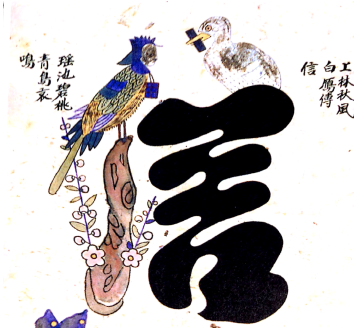 上林秋風
白鴈傳
信
信
瑶池碧桃
青鳥哀
鳴